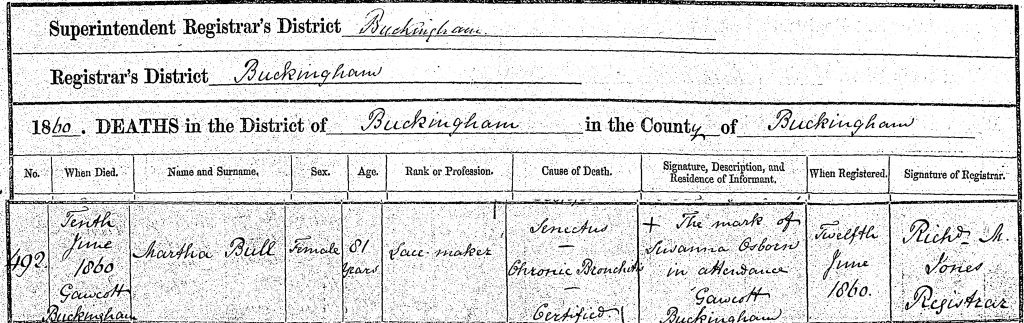 Superintendent Registrar's District Buckingham.
Registrar's District Buckingham
1860. DEATHS in the District of Buckingham in the County of Buckingham
No. When Died. Name and Surname. Sex. Age. Rank or Profession. Cause of Death. Signature, Description, and Residence of Informant. When Registered. Signature of Registrar.
492.
Tenth
June
1860
Gawcott
Buckingham
Martha Bull
Female
81
Years
Lace-maker
Senectus
Chronic Bronchitis
Certified
+ The mark of
Susanna Osborn
in attendance
Gawcott
Buckingham
Twelfth
June
1860.
Richd. M.
Jones
Registrar